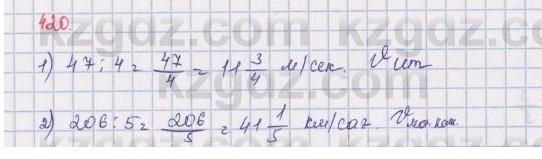 420.
1) 47 : 4 = 47/4 = 11 3/4 м/сек. V ит
2) 206 : 5 = 206/5 = 41 1/5 км/сағ. V
kzgdz.com